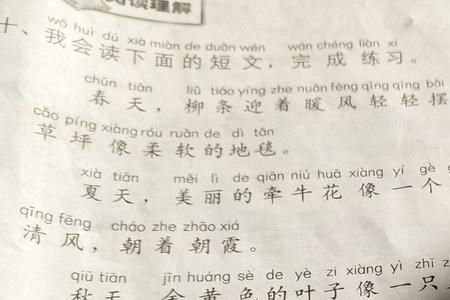 阅读理解
wǒ huì dú xià miàn de duǎn wén wán chéng liàn xí
十、我会读下面的短文，完成练习。
chūn tiān liǔ tiáo yíng zhe nuǎn fēng qīng qīng bǎi
春天，柳条迎着暖风轻轻摆
cǎo píng xiàng róu ruǎn de dì tǎn
草坪像柔软的地毯。
xià tiān měi lì de qiān niú huā xiàng yí gè
夏天，美丽的牵牛花像一个
qīng fēng cháo zhe zhāo xiá
清风，朝着朝霞。
qiū tiān jīn huáng sè de yè zi xiàng yì zhī
秋天 金黄色的叶子像一只